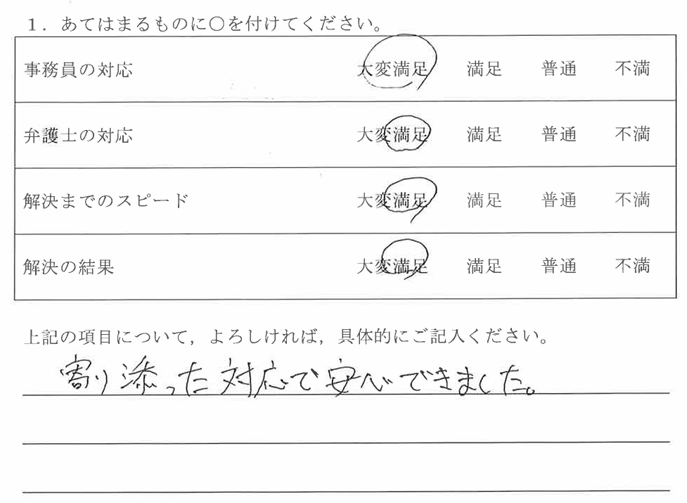 1．あてはまるものに○を付けてください。
事務員の対応 大変満足 満足 普通 不満
弁護士の対応 大変満足 満足 普通 不満
解決までのスピード 大変満足 満足 普通 不満
解決の結果 大変満足 満足 普通 不満
上記の項目について，よろしければ，具体的にご記入ください。
寄り添った対応で安心できました。